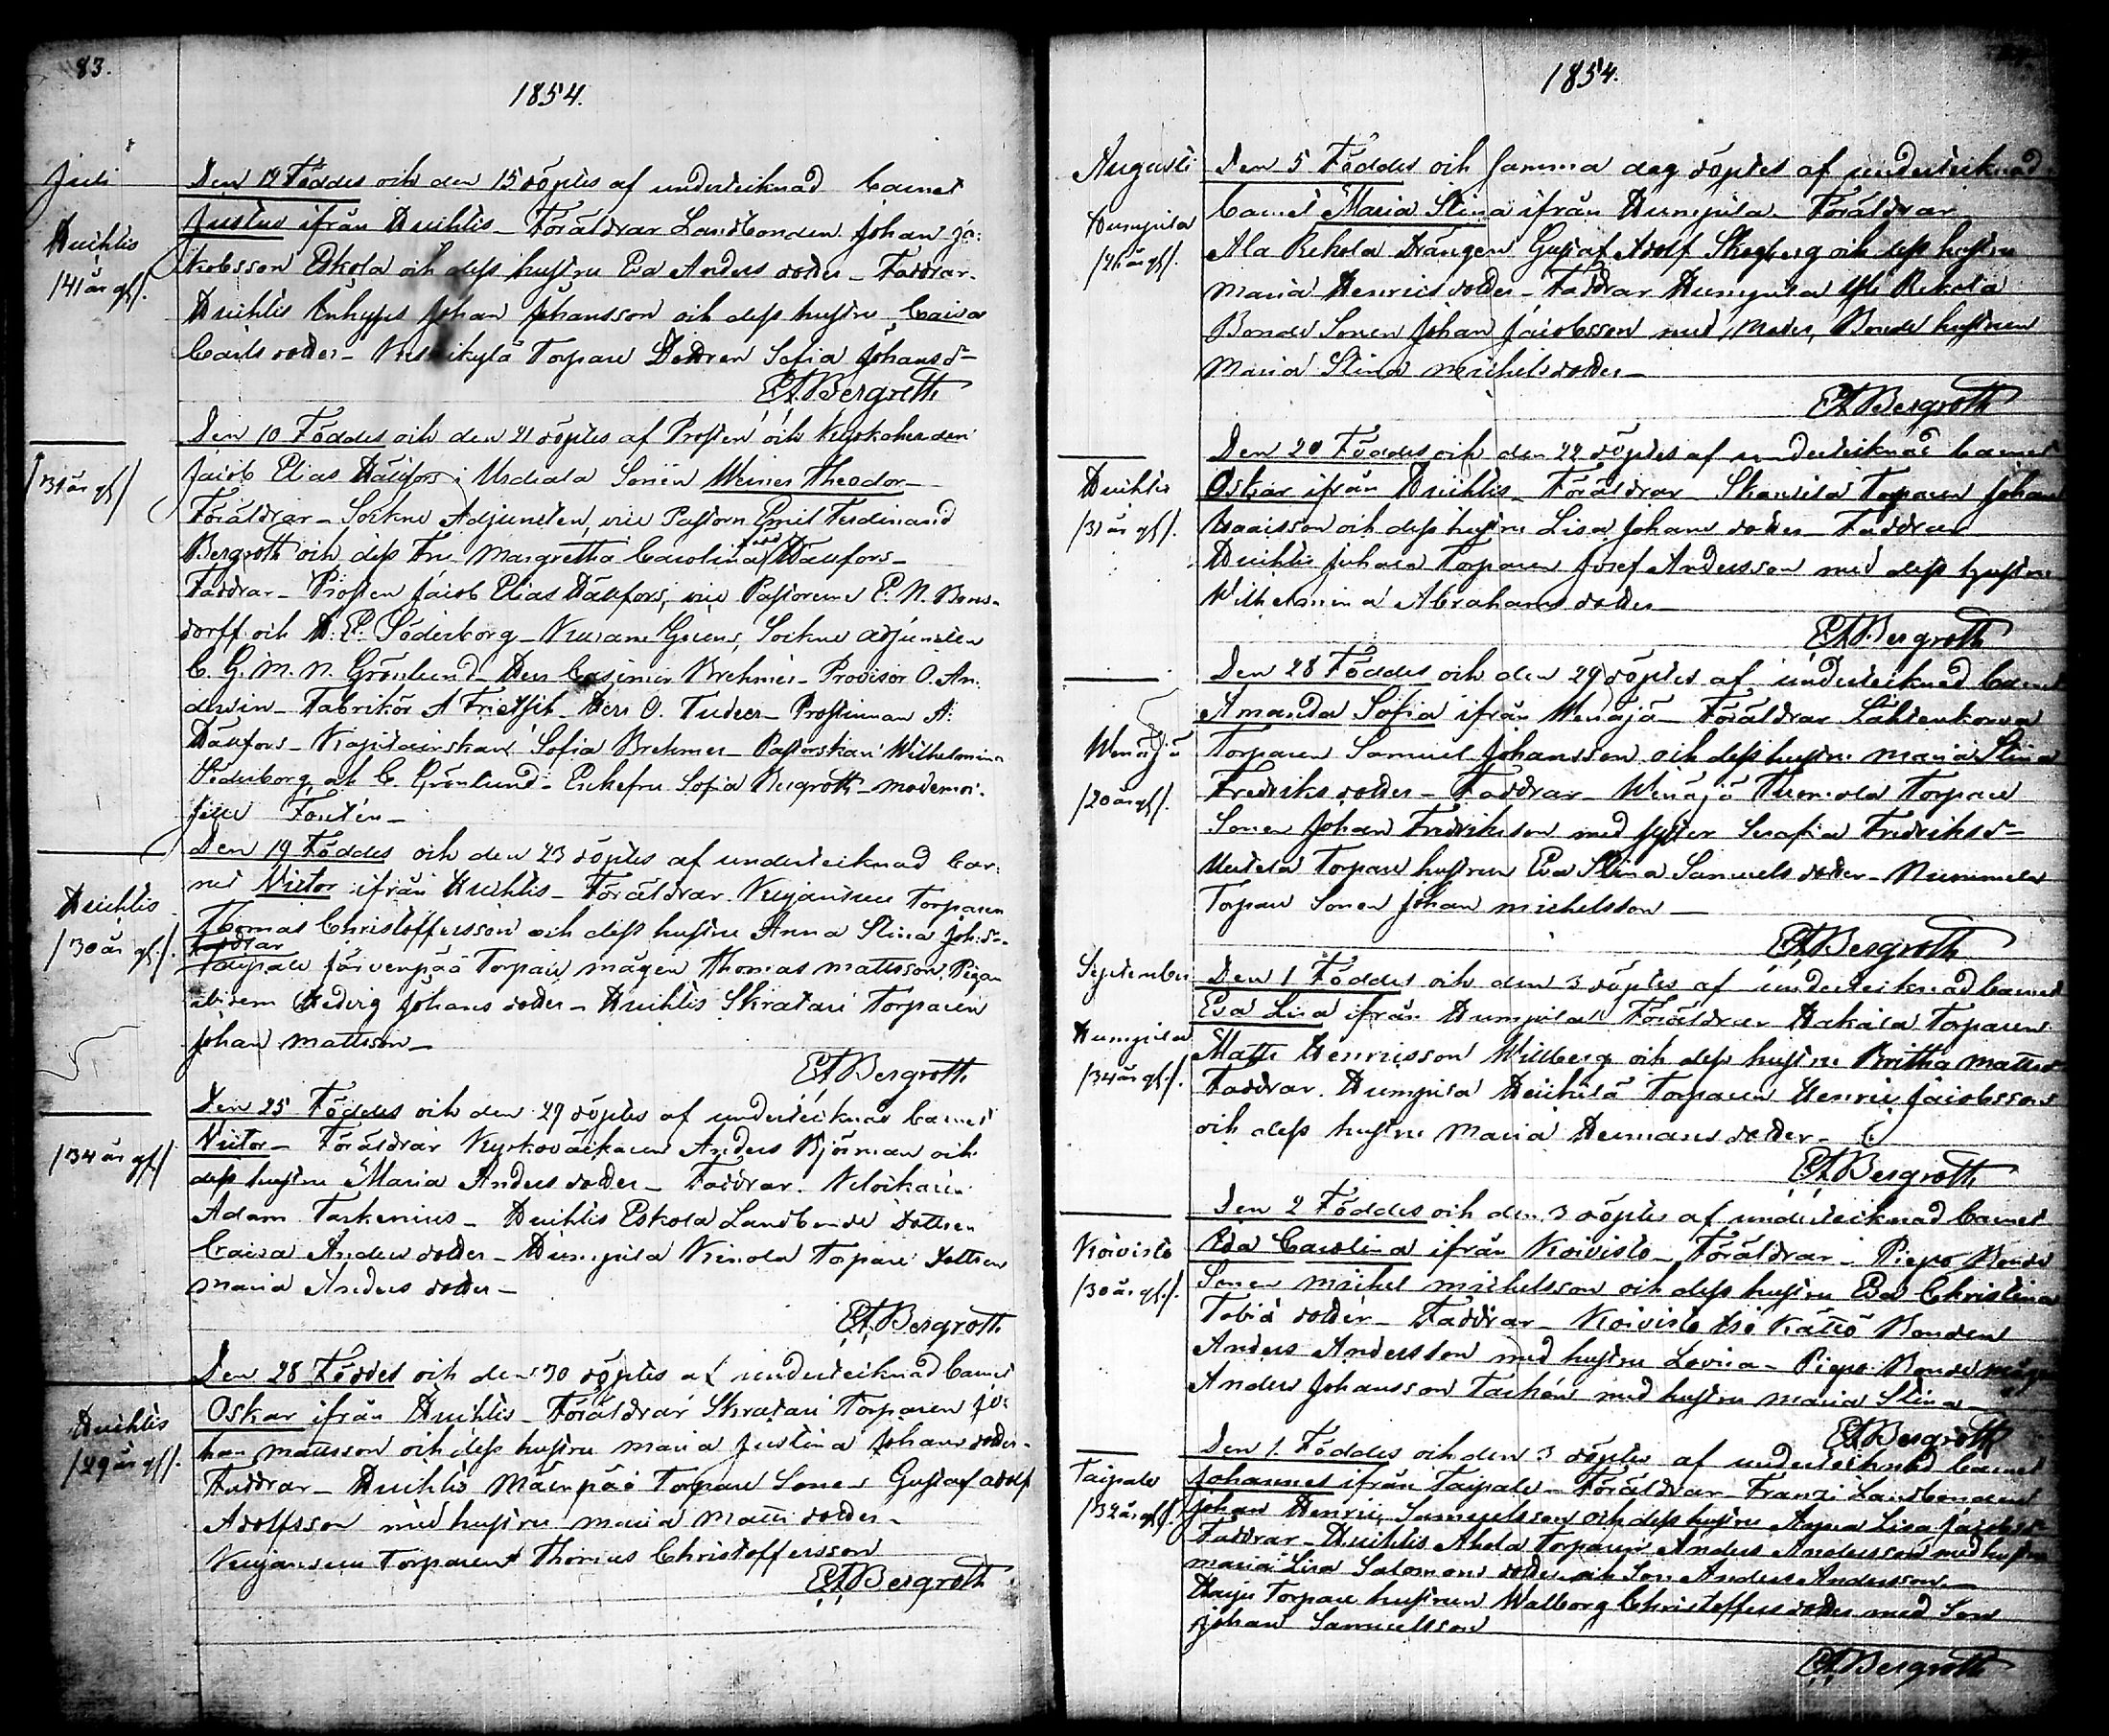 83.
1854.
Juli
Den 14 Föddes och den 15 döptes af undertecknad Barnet
Justus ifrån Huihtis - Föräldrar Landbonden Johan Ja-
Huihtis
kobsson Eskola och dess hustru Eva Anders dotter - Faddrar.
/41 år gl/.
Huihtis Inhyses Johan Johansson och dess hustru Caisa
Carls dotter - Torpare Dottren Sofia Johansdr
EFBergroth
Den 10 Föddes och den 21 döptes af Prosten och Kyrkoherden
/31 år gl/
Jacob Elias Dällfors i Urdiala Sonen Werner Theodor -
Föräldrar - Sockne Adjuncten, vice Pastorn Emil Ferdinand
Bergroth och dess Fru Margretha Carolina född Dällfors -
Faddrar - Prosten Jacob Elias Dällfors, vice Pastorerne E. N. Bons-
dorff och H. E. Söderborg - Sockne adjuncten
C. G. M. N. Grönlund - Herr Casimir Brehmer - Provisor O. An-
- Fabrikör A - Herr O. Tudeer - Prostinnan A.
Dällfors - Kapitainskan Sofia Brehmer - Pastorskan Wilhelmina
Söderborg och C. Grönlund - Enkefru Sofia Bergroth - mademoi-
selle Fontén -
Den 19 Föddes och den 23 döptes af undertecknad Bar-
net Victor ifrån Huihtis - Föräldrar Kujansuu Torparen
Huihtis
/30 år gl./.
Thomas Christoffersson och dess hustru Anna Stina Joh:dr
Faddrar
Taipale Järvenpää Torpare mågen Thomas Mattsson, Pigan
ibidem Hedvig Johans dotter - Huihtis Skratari Torparen
Johan Mattsson -
EFBergroth
Den 25 Föddes och den 29 döptes af undertecknad Barnet
/34 år gl/
Victor - Föräldrar Kyrkovaktaren Anders Björman och
dess hustru Maria Anders dotter - Faddrar. Klockaren
Adam Taskenius - Huihtis Eskola Landbonde Dottren
Caisa Anders dotter - Humpila Torpare Dottren
Maria Anders dotter -
EFBergroth
Den 28 Föddes och den 30 döptes af undertecknad Barnet
Huihtis
/29 år gl/.
Oskar ifrån Huihtis - Föräldrar Skratari Torparen Jo-
han Mattsson och dess hustru Maria Justina Johans dotter -
Faddrar - Huihtis Mäenpää Torpare Sonen Gustaf Adolf
Adolfsson med hustru Maria Matts dotter -
Kujansuu Torparen Thomas Christoffersson
EFBergroth
1854.
Augusti
Den 5 Föddes och samma dag döptes af undertecknad
Humpila
/26 år gl/.
Barnet Maria Stina ifrån Humpila - Föräldrar
Ala Rekola Drängen Gustaf Adolf Skogberg och dess hustru
Maria Henrics dotter - Faddrar Humpila Yli Rekola
Bonde Sonen Johan Jacobsson med Moder, Bonde hustrun
Maria Stina Michels dotter -
EFBergroth
Den 20 Föddes och den 22 döptes af undertecknad Barnet
Huihtis
/31 år gl/.
Oskar ifrån Huihtis - Föräldrar - Torparen Johan
Isaacsson och dess hustru Lisa Johans dotter - Faddrar
Huihtis Juhala Torparen Josef Andersson med dess hustru
Wilhelmina Abrahams dotter -
EFBergroth
Den 28 Föddes och den 29 döptes af undertecknad Barnet
Amanda Sofia ifrån Wenäjä - Föräldrar Lähteenkorva
Wenäjä
/20 år gl/.
Torparen Samuel Johansson och dess hustru Maria Stina
Fredriks dotter - Faddrar - Wenäjä Torpare
Sonen Johan Fredriksson med syster Serafia Fredriksdr -
Uutela Torpare hustrun Eva Stina Samuels dotter - Nummela
Torpare Sonen Johan Michelsson -
EFBergroth
September
Den 1 Föddes och den 3 döptes af undertecknad Barnet
Eva Lisa ifrån Humpila - Föräldrar Hakala Torparen
Humpila
/34 år gl./.
Matts Henricsson Willberg och dess hustru Britha Mattsdr
Faddrar. Humpila Heikkilä Torparen Henric Jacobsson
och dess hustru Maria Hermans dotter -
EFBergroth
Den 2 Föddes och den 3 döptes af undertecknad Barnet
Koivisto
/30 år gl./.
Eda Carolina ifrån Koivisto - Föräldrar - Piepo Bonde
Sonen Michel Michelsson och dess hustru Eva Christina
Tobias dotter - Faddrar - Koivisto Iso Kättö Bonden
Anders Andersson med hustru Lovisa - Piepo Bonde mågen
Anders Johansson Tackén med hustru Maria Stina -
EFBergroth
Den 1. Föddes och den 3 döptes af undertecknad Barnet
Taipale
/32 år gl/.
Johannes ifrån Taipale - Föräldrar - Franzi Landbonden
Johan Henric Samuelsson och dess hustru Anna Lisa Jacobsdr
Faddrar - Huihtis Ahola Torparen Anders Andersson med hustru
Maria Lisa Salomons dotter och Son Anders Andersson -
Torpare hustrun Walborg Christoffers dotter med Son
Johan Samuelsson
EFBergroth